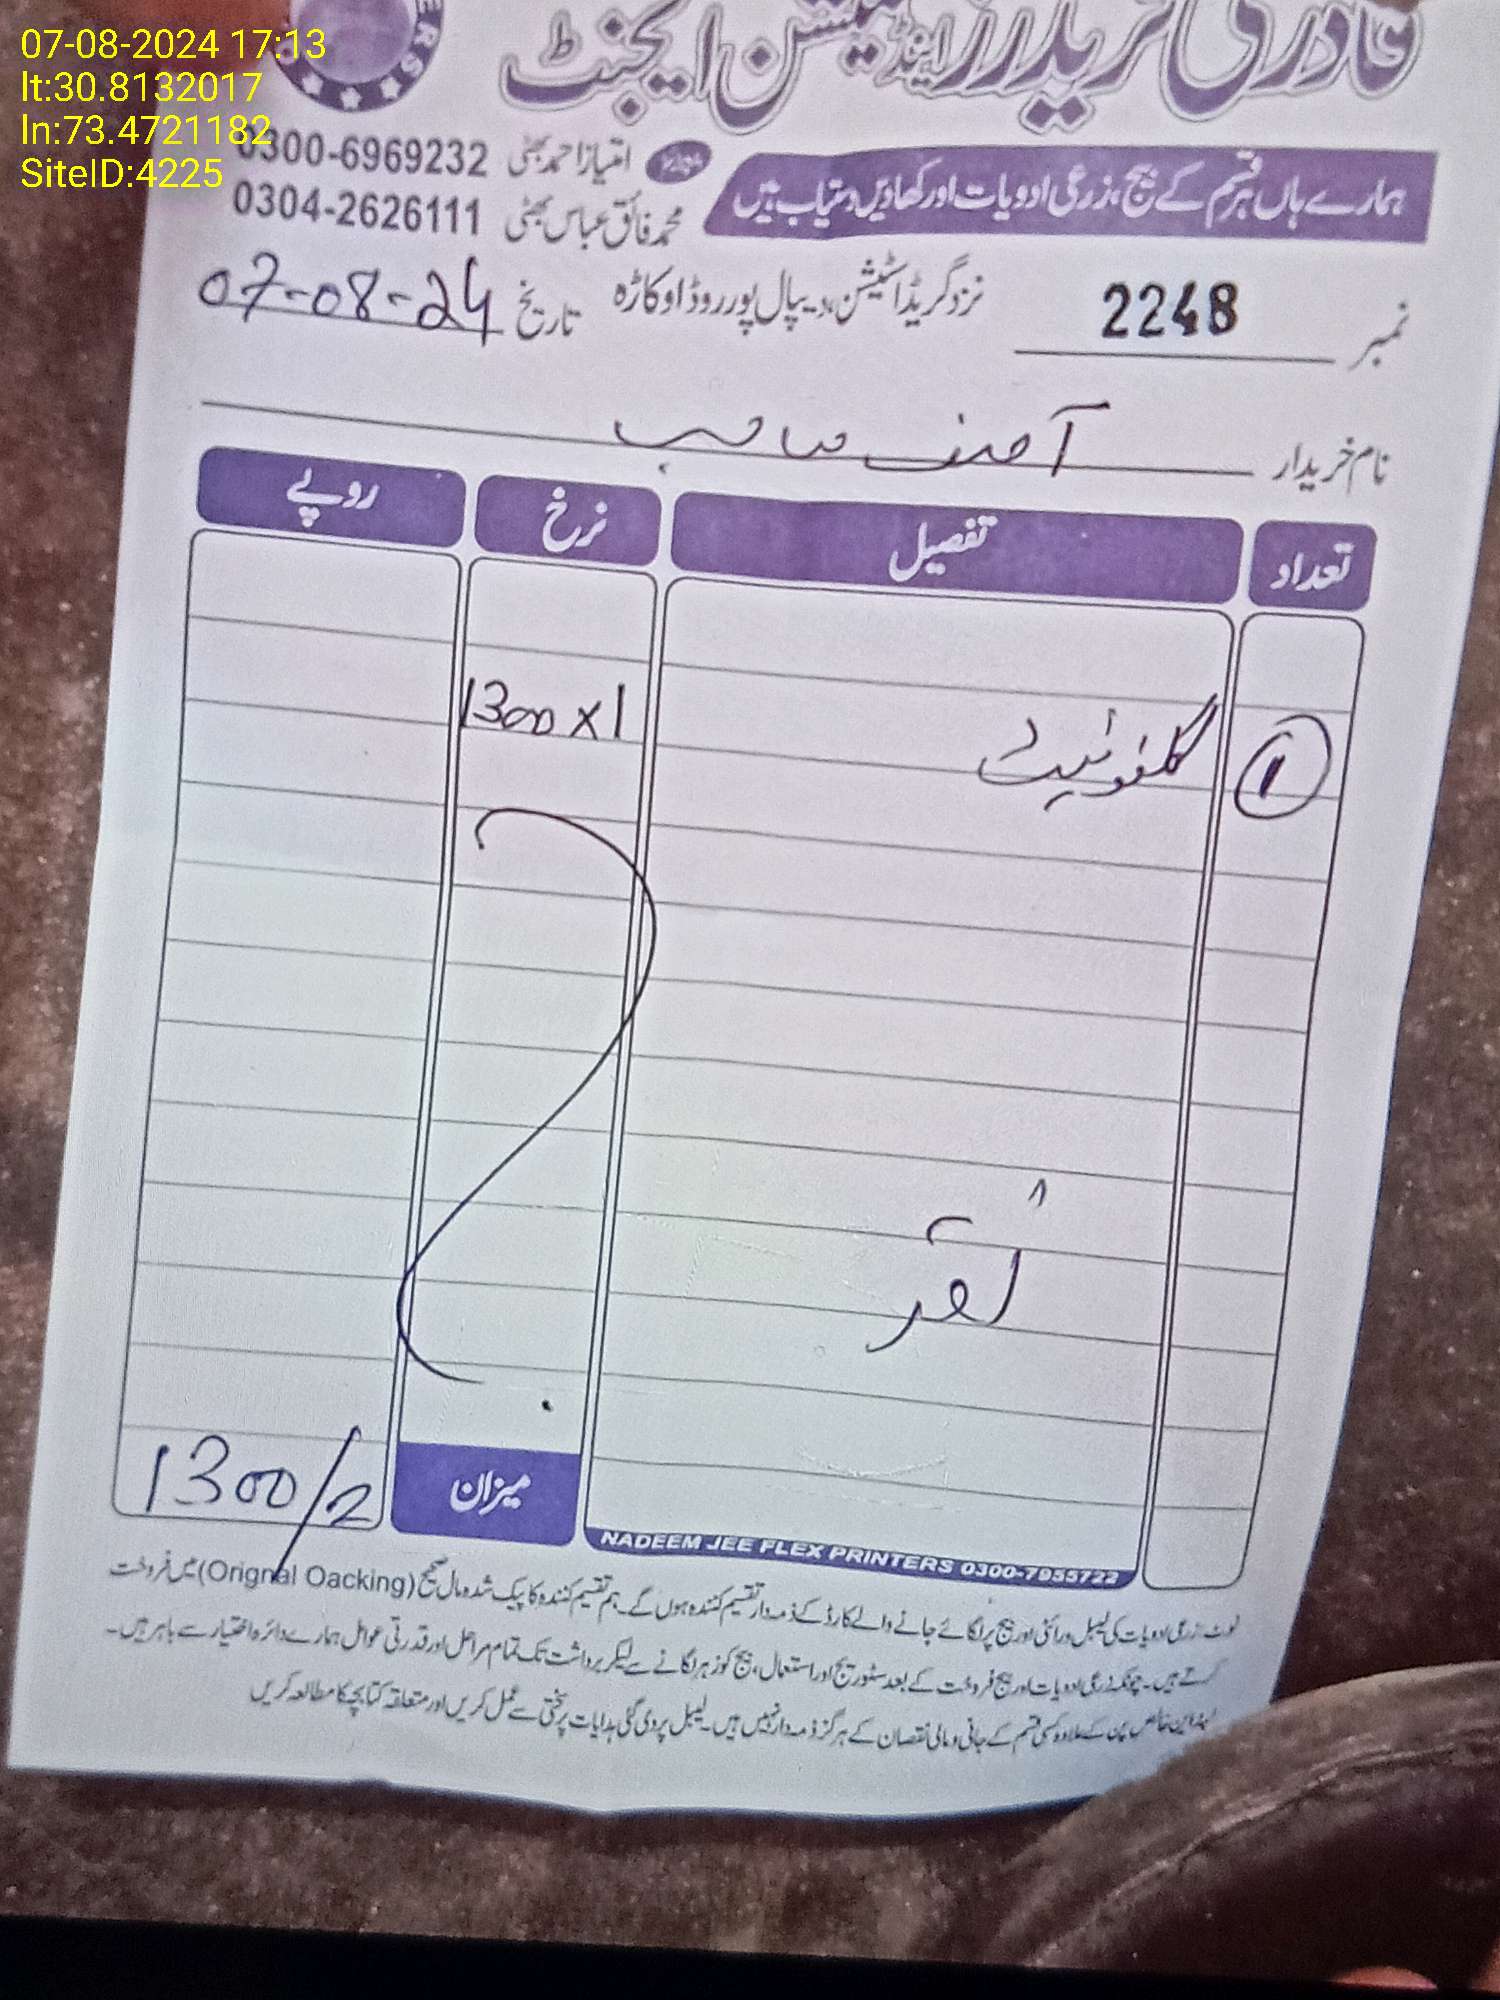 07-08-2024 17:13
lt:30.8132017
ln:73.4721182
SiteID:4225
قادری ٹریڈرز اینڈ کمیشن ایجنٹ
ERS
0300-6969232 امتیاز احمد بھٹی
0304-2626111 محمد فائق عباس بھٹی
ہمارے ہاں ہر قسم کے بیج، زرعی ادویات اور کھادیں دستیاب ہیں
نمبر 2248
نزد گرڈ اسٹیشن، دیپال پور روڈ اوکاڑہ
تاریخ 07-08-24
نام خریدار آصف صاحب
تعداد تفصیل نرخ روپے
1 1300 x 1
نقد
میزان 1300/2
NADEEM JEE FLEX PRINTERS 0300-7955722
نوٹ: زرعی ادویات کی لیبل ورائٹی اور بیج پر لگائے جانے والے کارڈ کے ذمہ دار تقسیم کنندہ ہوں گے۔ ہم تقسیم کنندہ کا پیک شدہ مال صحیح (Orignal Oacking) میں فروخت
کرتے ہیں۔ چونکہ زرعی ادویات اور بیج فروخت کے بعد سٹوریج اور استعمال، بیج کو زہر لگانے سے لیکر برداشت تک تمام مراحل اور قدرتی عوامل ہمارے دائرہ اختیار سے باہر ہیں۔
کے علاوہ کسی قسم کے جانی و مالی نقصان کے ہرگز ذمہ دار نہیں ہیں۔ لیبل پر دی گئی ہدایات پر سختی سے عمل کریں اور متعلقہ کتابچہ کا مطالعہ کریں